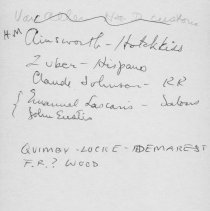 HM Ainsworth - Hotchkiss
Zuber - Hispano
Claude Johnson - RR
Emanuel Lascaris - Salons
John Eustis
QUIMBY - LOCKE - DEMAREST
F.R.? WOOD